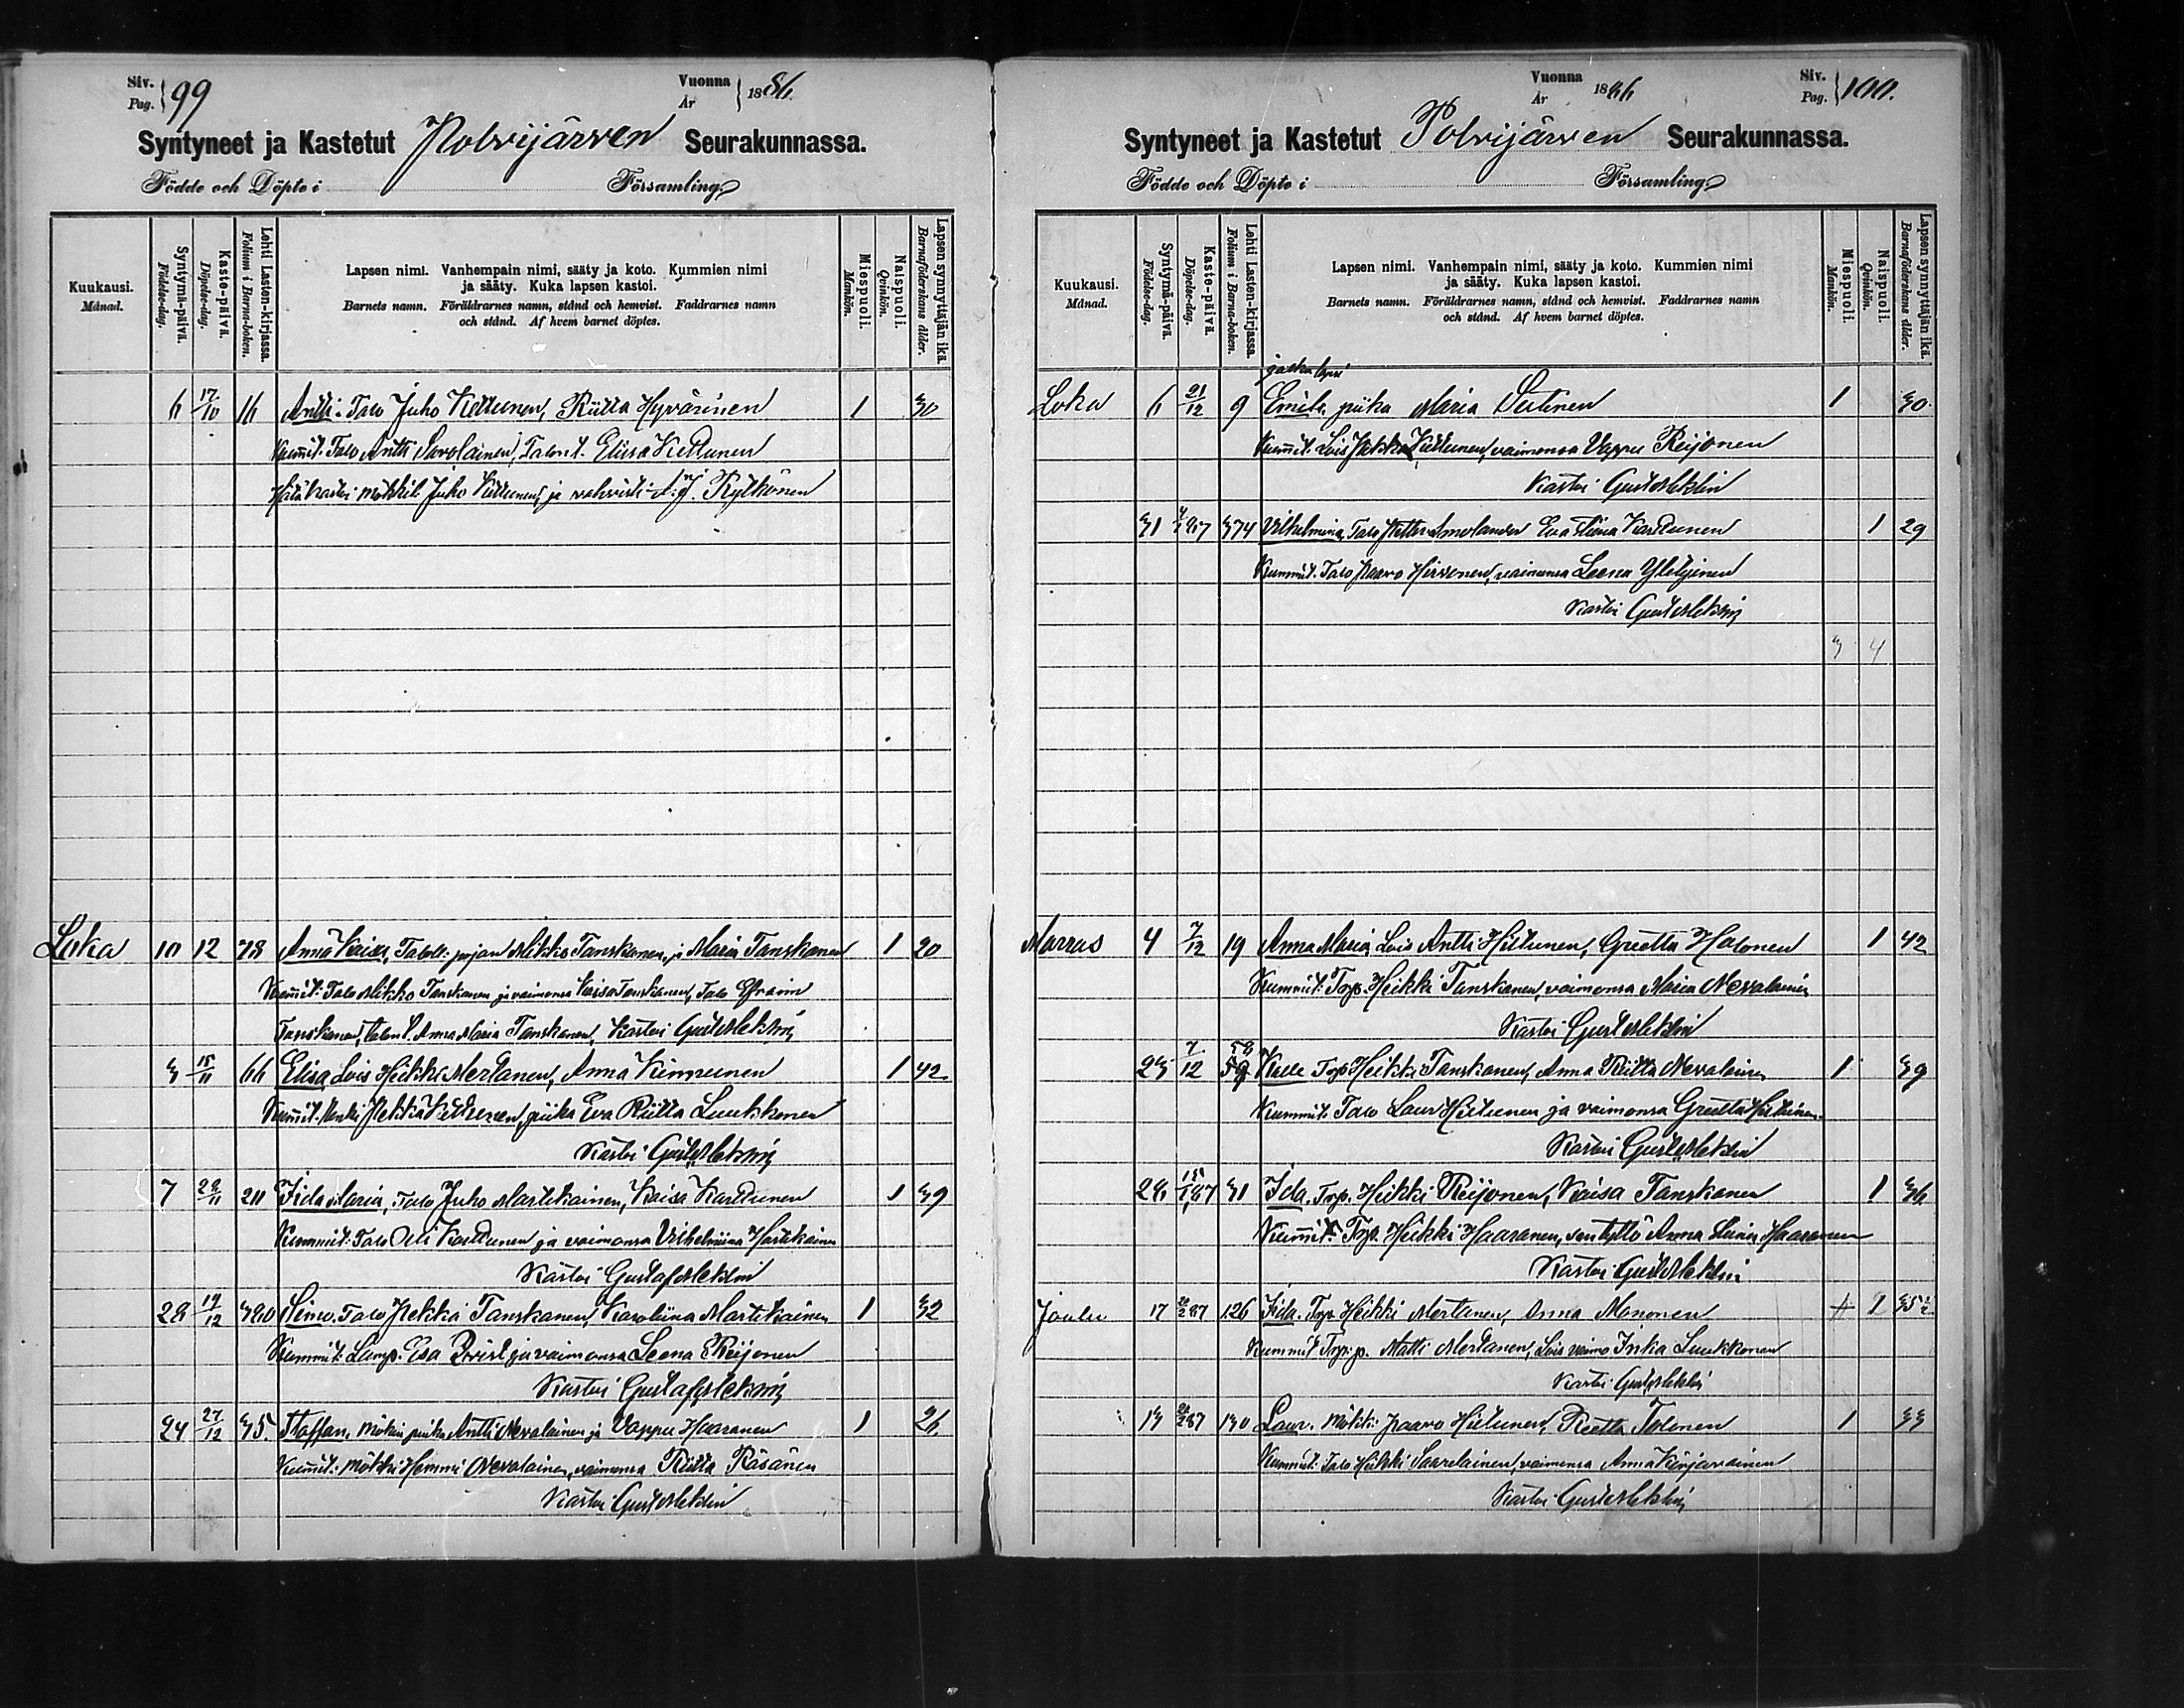 Siv. Pag. 99
Vuonna År 1886.
Syntyneet ja Kastetut Polvijärven Seurakunnassa.
Födde och Döpte i Församling
Kuukausi. Månad.
Syntymä-päivä. Födelse-dag.
Kaste-päivä. Döpelse-dag.
Lehti Lasten-kirjassa. Folium i Barna-boken.
Lapsen nimi. Vanhempain nimi, sääty ja koto. Kummien nimi
ja sääty. Kuka lapsen kastoi.
Barnets namn. Föräldrarnes namn, stånd och hemvist. Faddrarnes namn
och stånd. Af hvem barnet döptes.
Miespuoli. Mankön.
Naispuoli. Qvinkön.
Lapsen synnyttäjän ikä. Barnaföderskans ålder.
6 17/10 16 Antti. Talo Juho Kettunen, Riitta Hyvärinen 1 30
Kummit. Talo Antti Savolainen, Talon t. Eliisa Kettunen
Hätäkastoi mökkil. Juho Kettunen, ja vahvisti A. J. Rytkönen
Loka 10 12 78 Anna Kaisa, Talol: pojan Mikko Tanskanen, ja Maria Tanskanen 1 20
Kummit: Talo Mikko Tanskanen ja vaimonsa Kaisa Tanskanen, Talo Efraim
Tanskanen, talon t. Anna Maria Tanskanen, Kastoi Gust
3 15/11 66 Elisa Lois Heikki Mertanen, Anna Kinnunen 1 42
Kummit. Renki Pekka Kettunen, piika Eva Riitta Luukkonen
Kastoi Gust
7 28/11 211 Fida Maria, Talo Juho Martikainen, Kaisa Karttunen 1 39
Kummit: Talo Olli Karttunen ja vaimonsa Vilhelmiina Martikainen
Kastoi Gustaf
28 19/12 380 Simo. Talo Pekka Tanskanen, Karoliina Martikainen 1 32
Kummit: Lamp. Esa ja vaimonsa Leena Reijonen
Kastoi Gustaf
24 27/12 35. Staffan, Antti Nevalainen ja Vappu Haaranen 1 26
Kummit: Mökki Hemmi Nevalainen, vaimonsa Riitta Räsänen
Kastoi Gust
Vuonna År 1886
Siv. Pag. 100.
Syntyneet ja Kastetut Polvijärven Seurakunnassa.
Födde och Döpte i Församling
Kuukausi. Månad.
Syntymä-päivä. Födelse-dag.
Kaste-päivä. Döpelse-dag.
Lehti Lasten-kirjassa. Folium i Barna-boken.
Lapsen nimi. Vanhempain nimi, sääty ja koto. Kummien nimi
ja sääty. Kuka lapsen kastoi.
Barnets namn. Föräldrarnes namn, stånd och hemvist. Faddrarnes namn
och stånd. Af hvem barnet döptes.
Miespuoli. Mankön.
Naispuoli. Qvinkön.
Lapsen synnyttäjän ikä. Barnaföderskans ålder.
lapsi
Loka 6 21/12 9 Emil. piika Maria Sutinen 1 30.
Kummit. Lois Pekka Kettunen, vaimonsa Vappu Reijonen
Kastoi Gust
31 374 Vilhelmina, Talo Petter Smolander Eva Stina Karttunen 1 29
Kummit. Talo Paavo Hirvonen, vaimonsa Leena Ylitjinen
Kastoi Gust
3 4
Marras 4 7/12 19 Anna Maria, Lois Antti Hiltunen, Greetta Halonen 1 42
Kummit: Torp. Heikki Tanskanen, vaimonsa Maria Nevalainen
Kastoi Gust
23 7/12 59 Kalle Torp Heikki Tanskanen, Anna Riitta Nevalainen 1 39
Kummit: Talo Lauri Hiltunen ja vaimonsa Greetta
Kastoi Gust
28 31 Ida. Torp. Heikki Reijonen, Kaisa Tanskanen 1 36
Kummit. Torp. Heikki Haaranen, sen tyttö Anna Liisa Haaranen
Kastoi Gust
Joulu 17 126 Fida. Torp. Heikki Mertanen, Anna Mononen 1 35 1/2
Kummit Torp. p. Matti Mertanen, Lois vaimo Inka Luukkonen
Kastoi Gust
13 130 Laur. Mökki: Paavo Hiltunen, Reetta Tolonen 1 33
Kummit: Talo Heikki Saarelainen, vaimonsa Anna Kinjavainen
Kastoi Gust